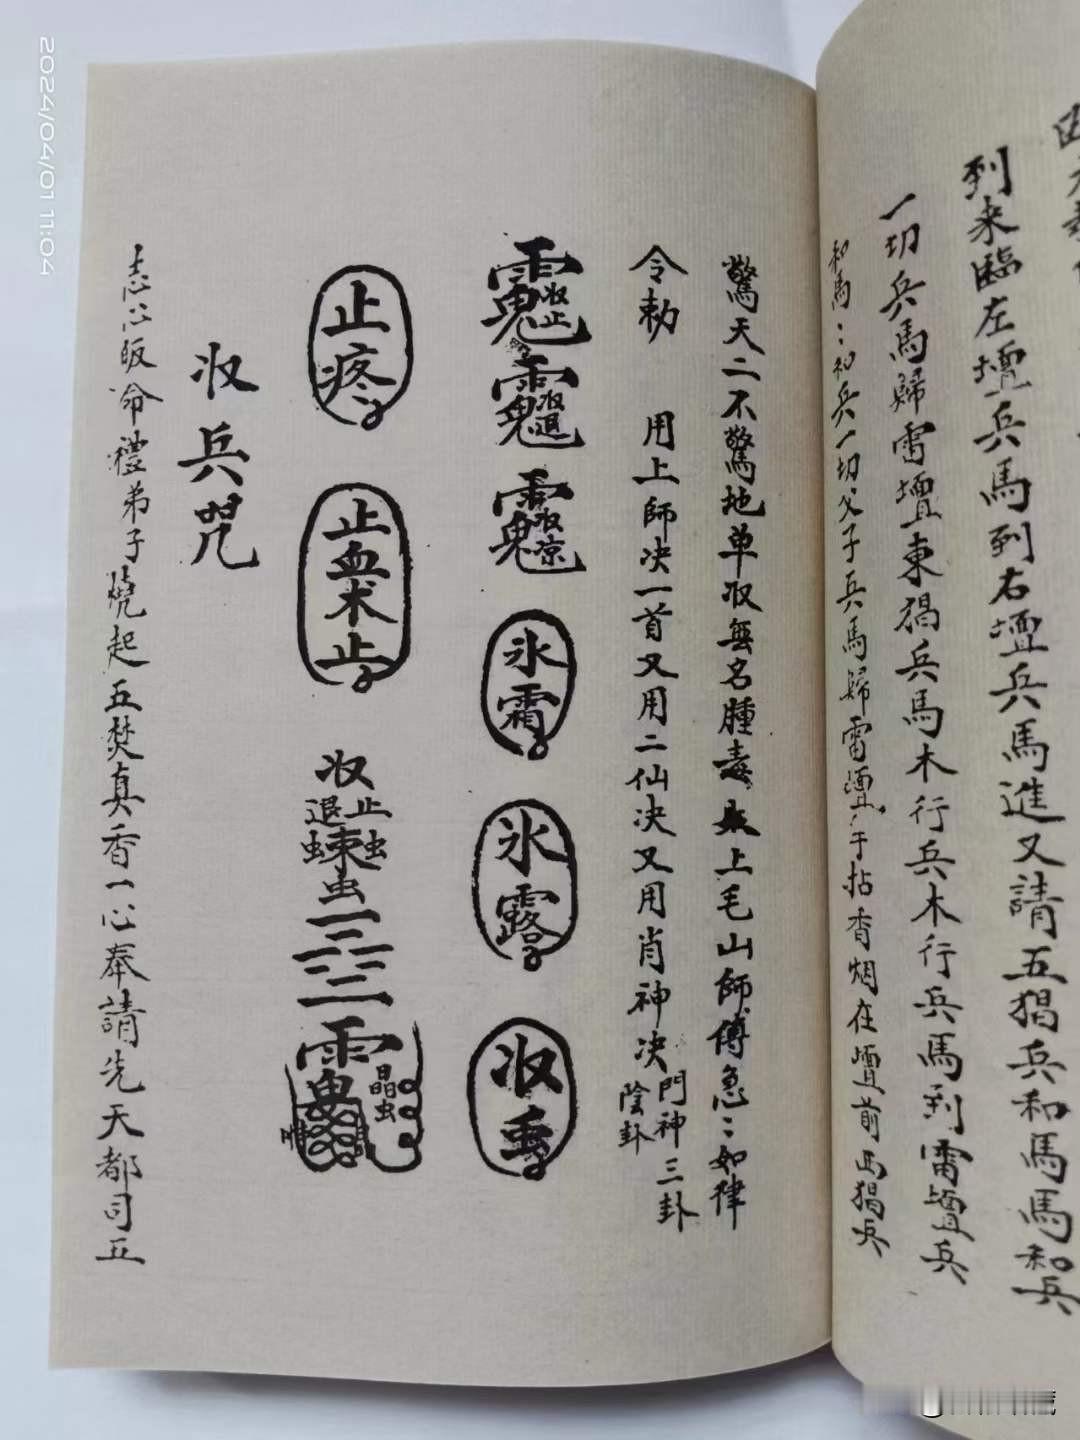 到来臨左壇兵馬到右壇兵馬進又請五猖兵和馬馬和兵
一切兵馬歸雷壇東猖兵馬木行兵木行兵馬到雷壇兵
和馬：和兵一切父子兵馬歸雷壇手拈香烟在壇前西猖兵
驚天二不驚地单收無名腫毒上毛山師傅急：如律
令勅 用上師决一首又用二仙决又用肖神决門神三卦
陰卦
收止
收退
收凉
氷霜
氷露
收毒
止疼
止血术止
收
退虫 止虫
虫
晶虫
收兵咒
志心皈命禮弟子燒起五焚真香一心奉請先天都司五
2024/04/01 11:04